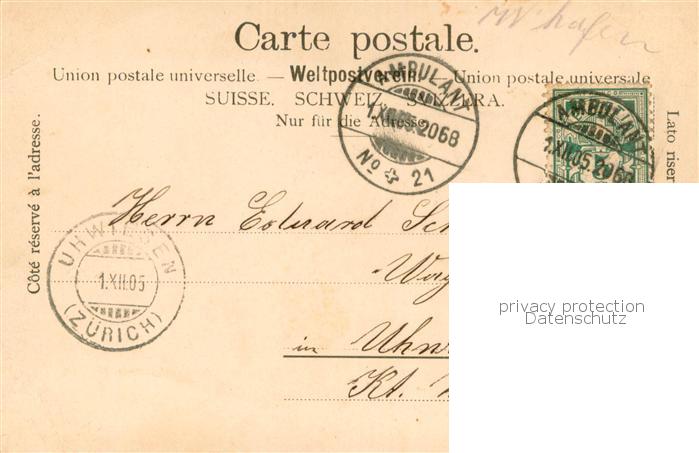 W'hafen
Carte postale.
Union postale universelle. — Weltpostverein. — Union postale universale
SUISSE. SCHWEIZ. SVIZZERA.
Nur für die Adresse.
AMBULANT
1.XII.05.2068
No 21
AMBULANT
1.XII.05.206
Côté réservé à l'adresse.
Lato riser
Herrn Eduard Sch
Wag
in Uhw
Kt.
UHWIESEN
1.XII.05
(ZÜRICH)
privacy protection
Datenschutz